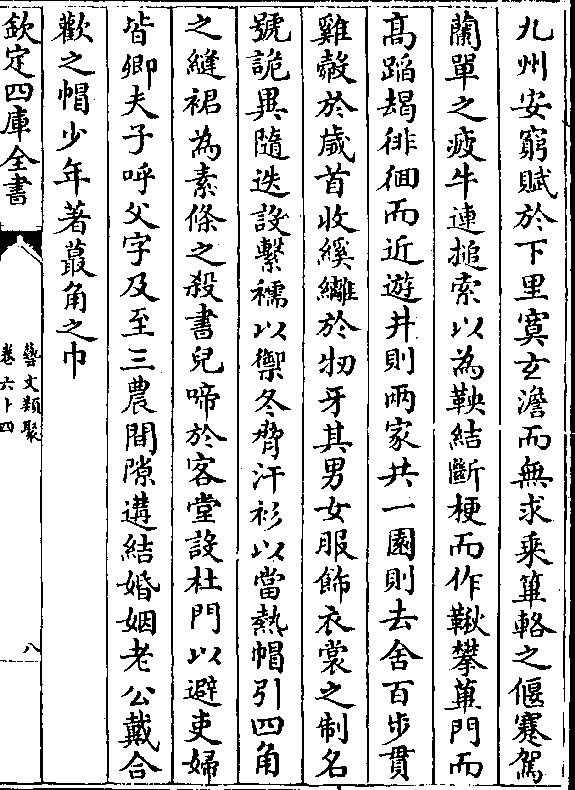 九州安窮賦於下里寞玄澹而無求乘篳輅之偃蹇駕
蘭單之疲牛連搥索以為鞅結斷梗而作鞦攀蓽門而
高蹈朅徘徊而近遊井則兩家共一園則去舍百步貫
雞鷇於歲首收縘纚於牣牙其男女服飾衣裳之制名
號詭異隨迭設繫襦以禦冬脅汗衫以當熱帽引四角
之縫裙為素條之殺書兒啼於客堂設杜門以避吏婦
皆卿夫子呼父字及至三農間隙遘結婚姻老公戴合
歡之帽少年著蕞角之巾
欽定四庫全書
藝文類聚
卷六十四
八